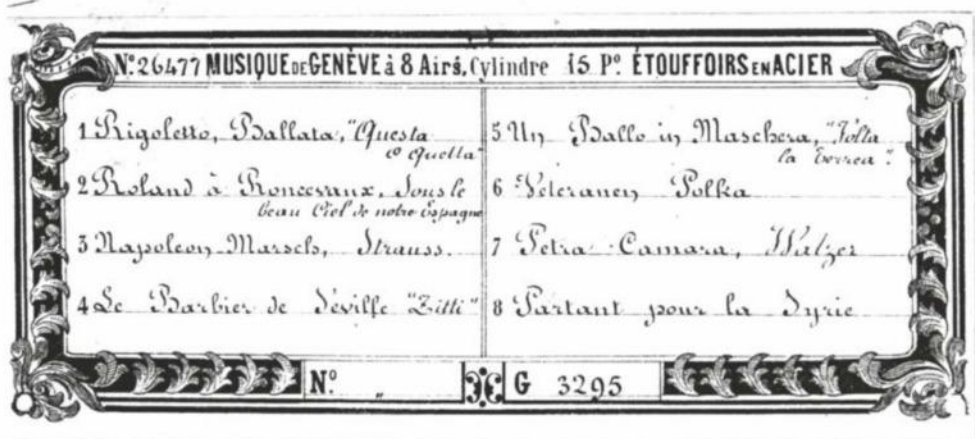 N.º 26477 MUSIQUE DE GENÈVE à 8 Airs, Cylindre 15 Pº. ÉTOUFFOIRS EN ACIER
1 Rigoletto, Ballata, "Questa
o Quella"
2 Roland à Roncevaux, Sous le
beau Ciel de notre Espagne
3 Napoleon Marsch, Strauss.
4 Le Barbier de Séville "Zitti"
5 Un Ballo in Maschera, "Volta
la terrea".
6 Veteranen Polka
7 Petra Camara, Walzer
8 Partant pour la Syrie
Nº. "
G 3295